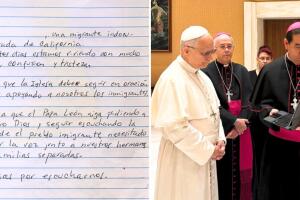 , una migrante indocu
rada de California
tos días estamos viviendo con mucho
, confusión y tristeza.
que la Iglesia debe seguir en oración
apoyando a nosotros los inmigrantes.
a que el Papa León siga pidiendo a
o Dios y seguir escuchando la
de el pueblo inmigrante necesitado
r la voz junto a nuestros hermanos
milias separadas.
as por escucharnos.